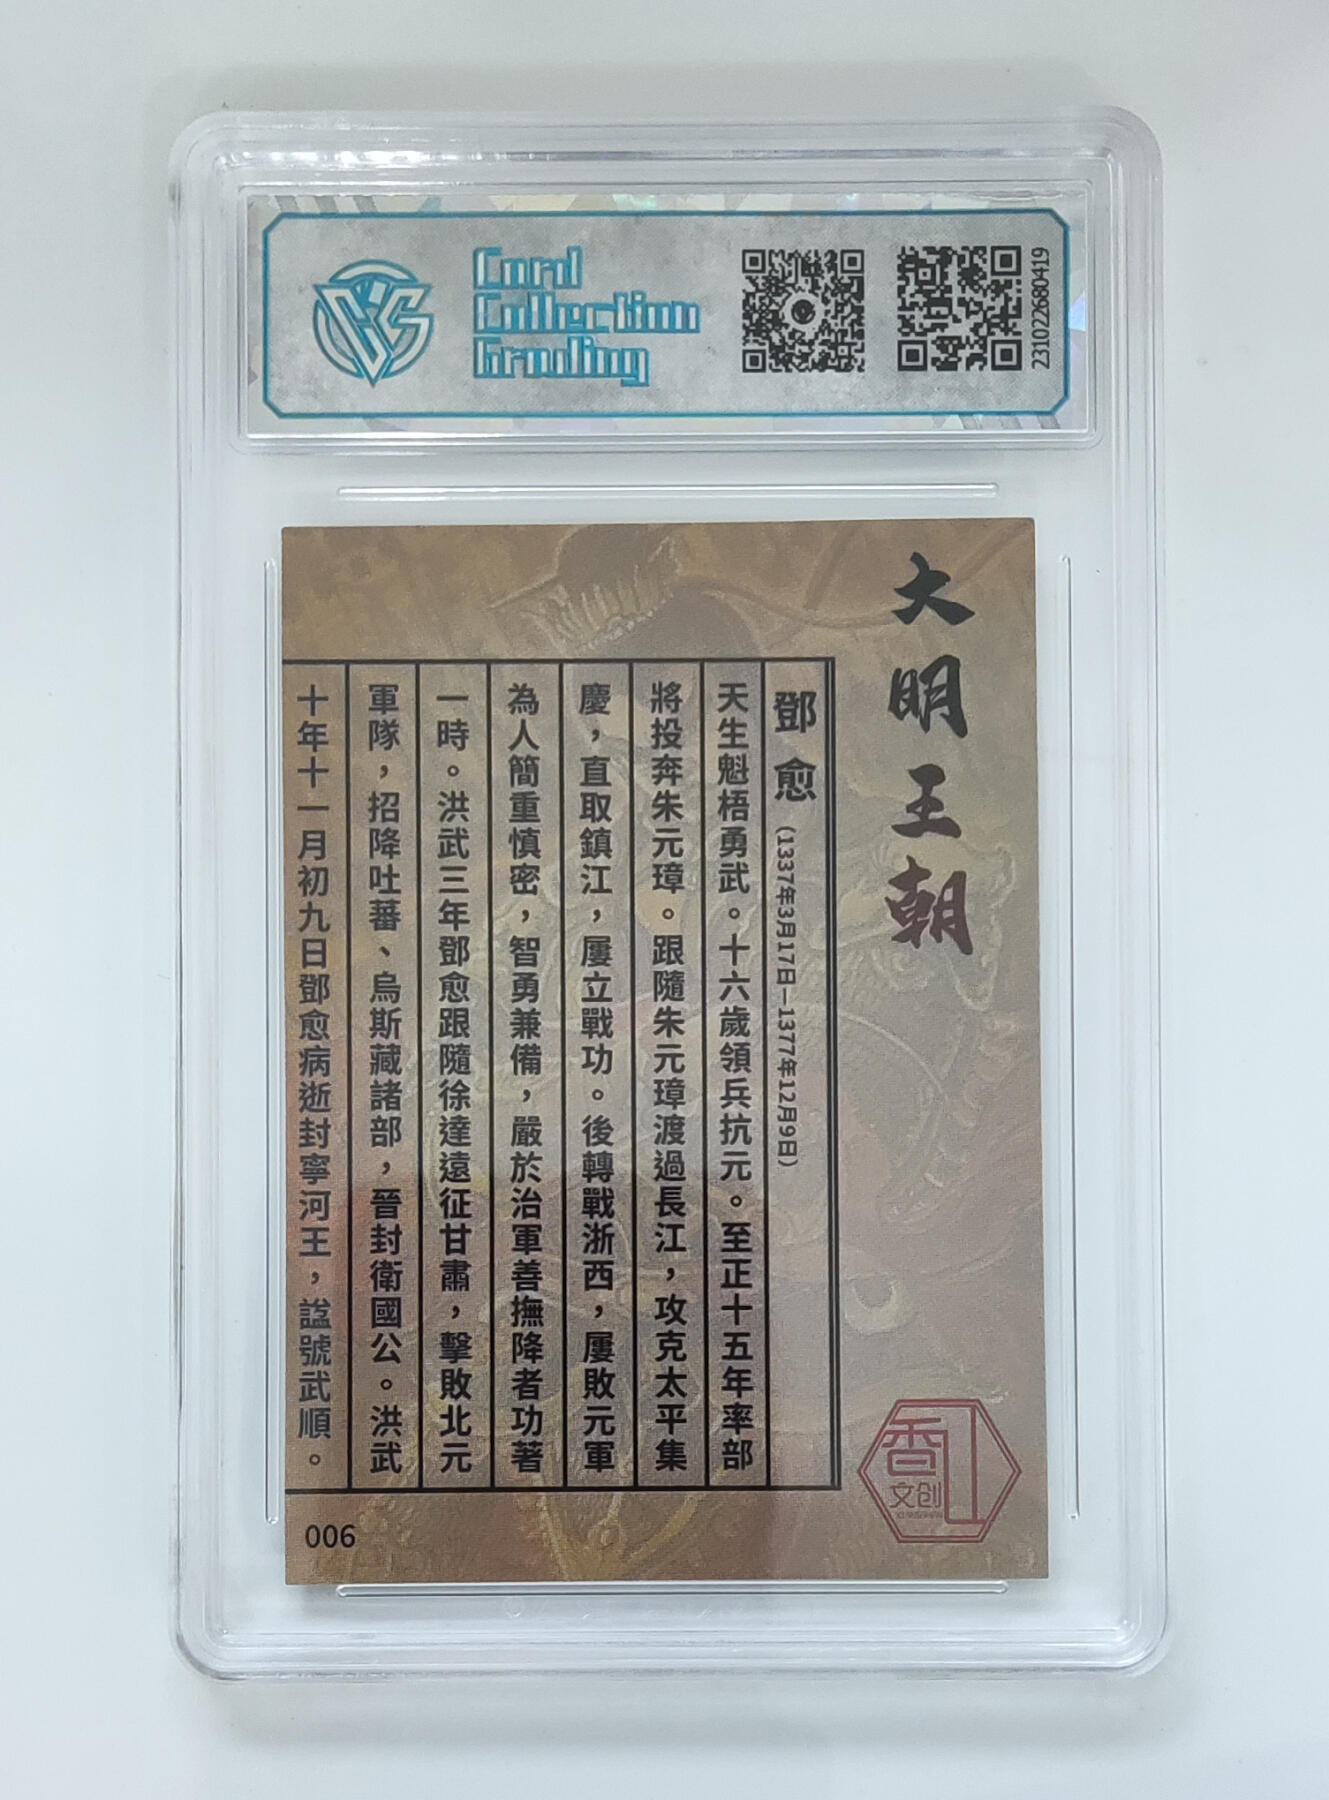 Card
Collection
Grading
2310226680419
大明王朝
鄧愈(1337年3月17日—1377年12月9日)
天生魁梧勇武。十六歲領兵抗元。至正十五年率部
將投奔朱元璋。跟隨朱元璋渡過長江，攻克太平集
慶，直取鎮江，屢立戰功。後轉戰浙西，屢敗元軍
為人簡重慎密，智勇兼備，嚴於治軍善撫降者功著
一時。洪武三年鄧愈跟隨徐達遠征甘肅，擊敗北元
軍隊，招降吐蕃、烏斯藏諸部，晉封衛國公。洪武
十年十一月初九日鄧愈病逝封寧河王，諡號武順。
香山
文创
006